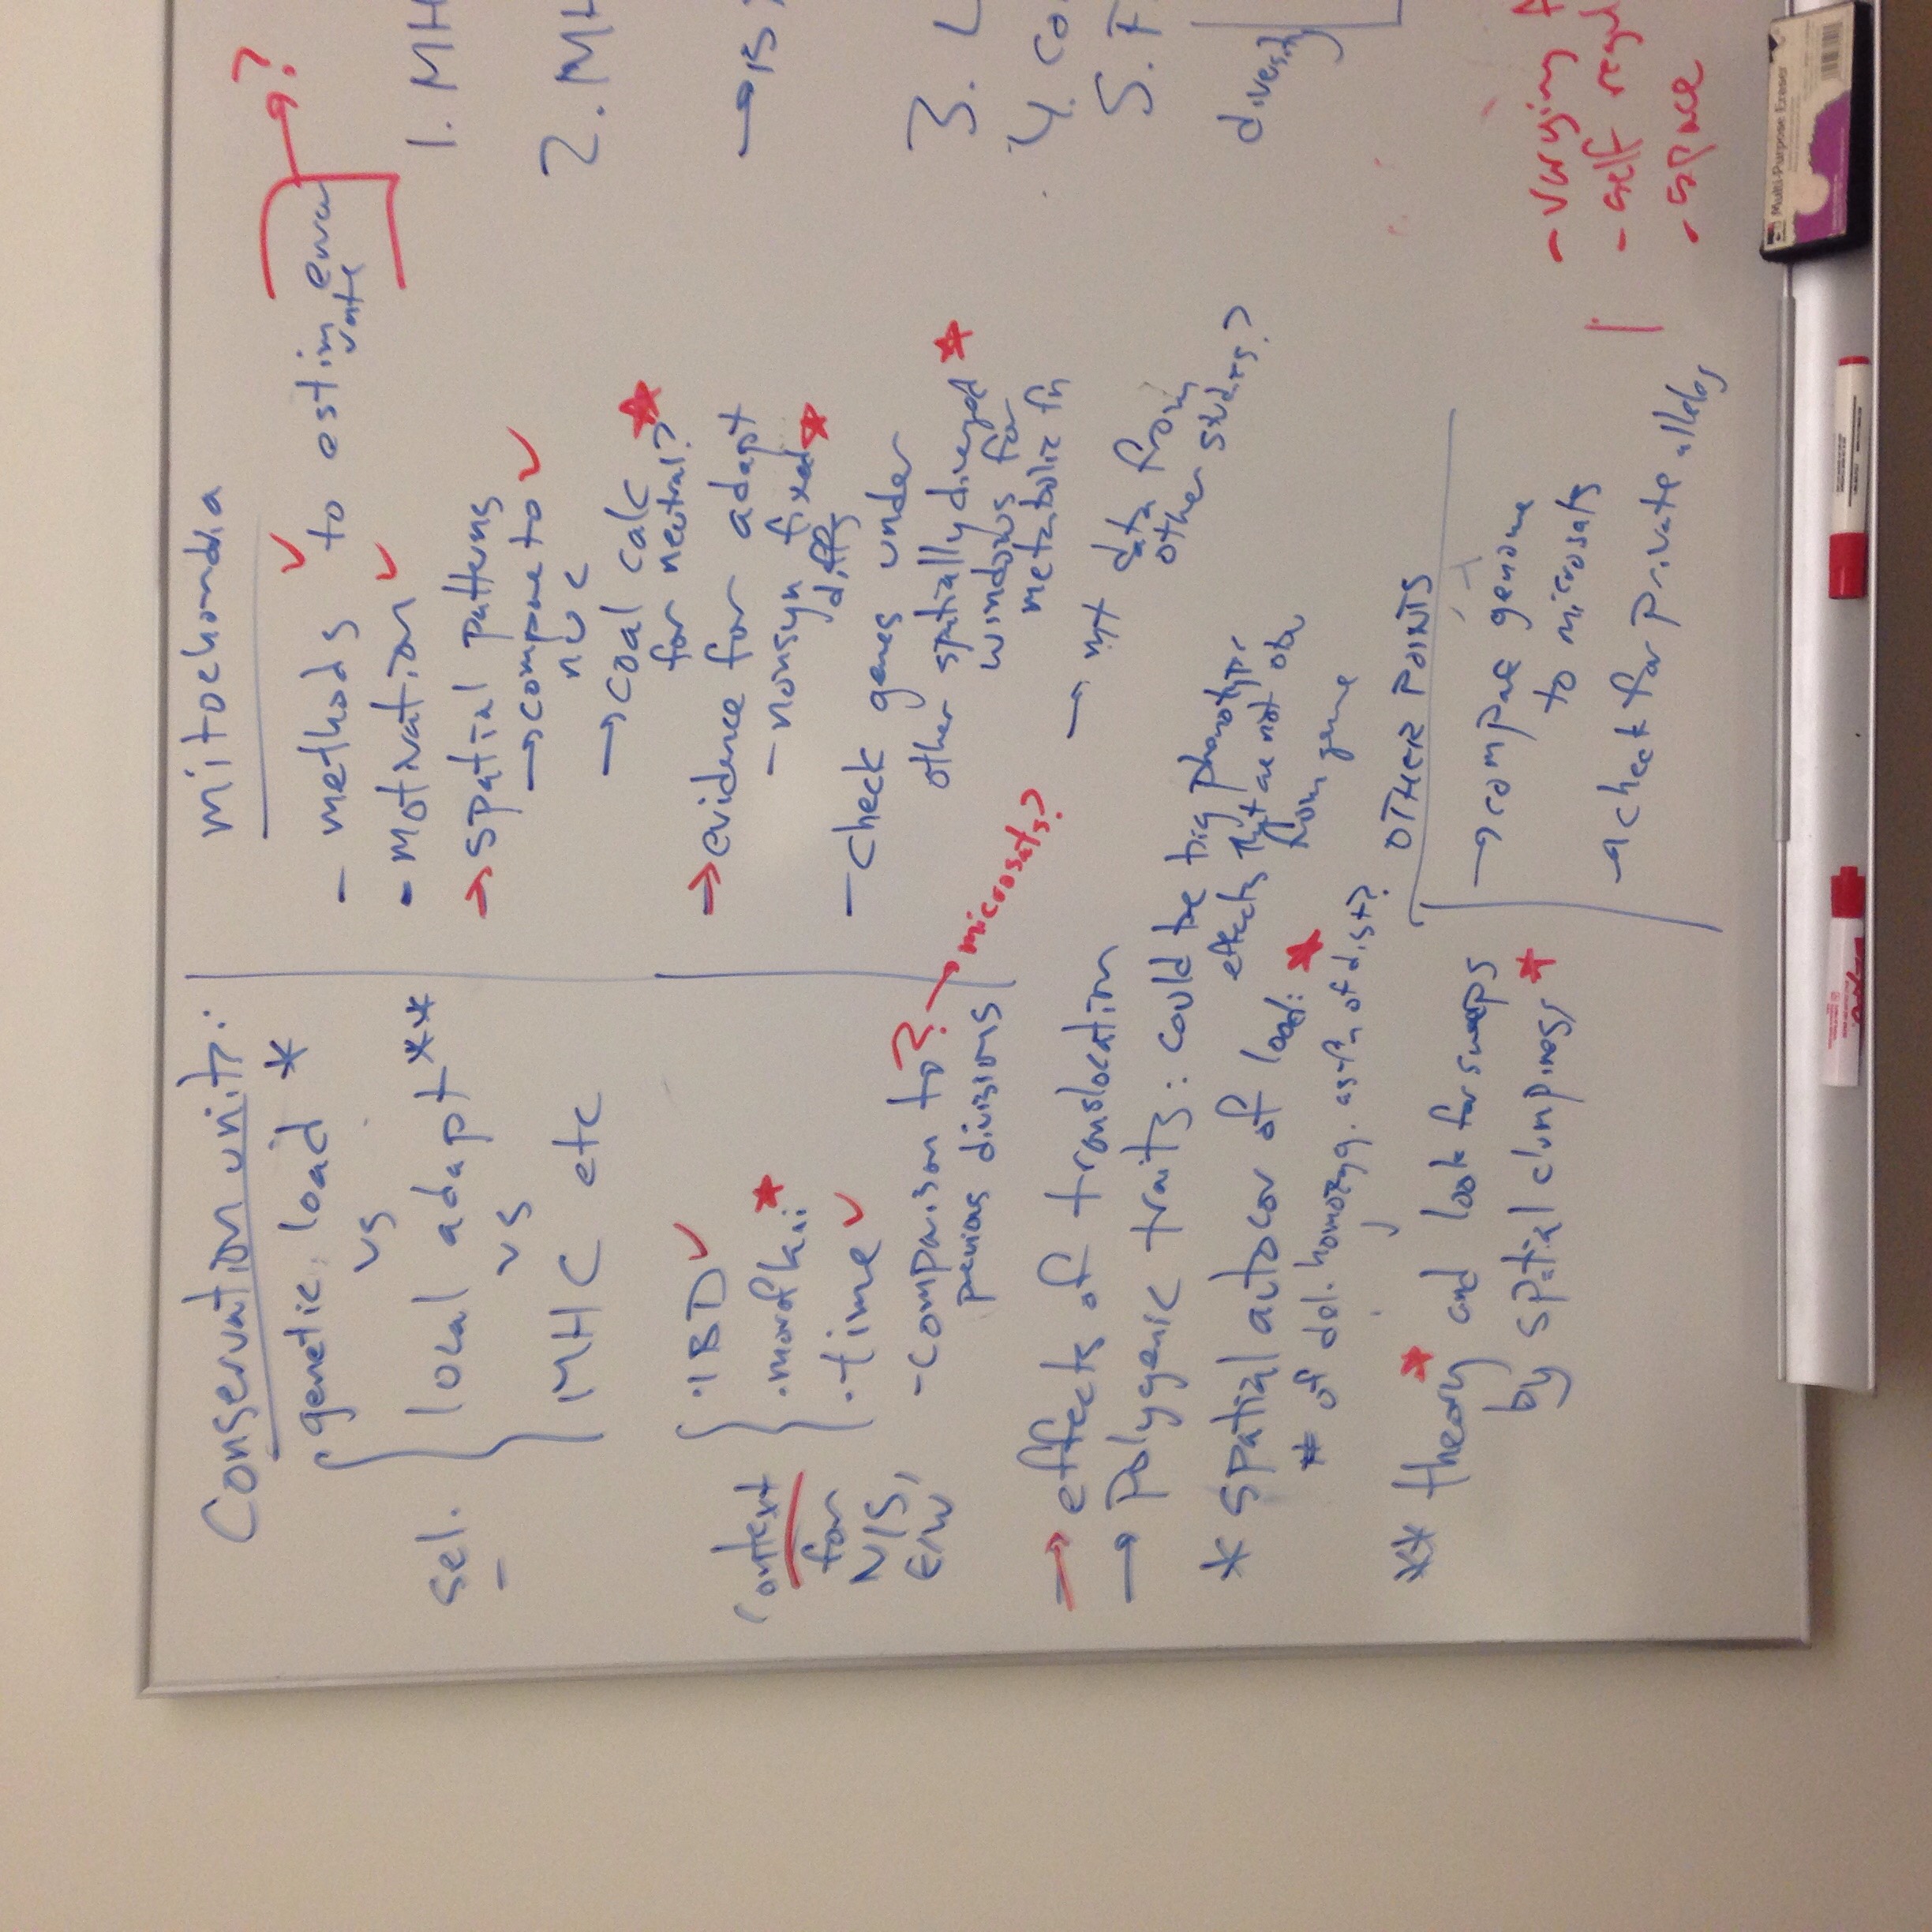 Conservation units:
genetic load *
vs
sel.
local adapt **
vs
MHC etc
context
for
N/S,
E/W
· IBD ✓
·
· time ✓
- comparison to ?
previous divisions
→ microsats?
→ effects of translocation
→ polygenic traits: could be big phenotypic
effects that are not obv
from genome
* spatial autocor of load:
# of del. homozyg. as fn of dist?
** theory and look for sweeps
by spatial clumpiness
mitochondria
- methods ✓ to estim error
rate
→ ?
- motivation ✓
→ spatial patterns
→ compare to ✓
nuc
→ coal calc
for neutral?
→ evidence for adapt
- nonsyn fixed
diffs
- check genes under
other spatially diverged
windows for
metabolic fn
→ mt data from
other studies?
OTHER POINTS
→ compare genome
to microsats
→ check for private alleles
1. MH
2. MH
→ is
3. L
4. Co
5. F
diversity
- varying
- self regul
- space
Multi-Purpose Eraser